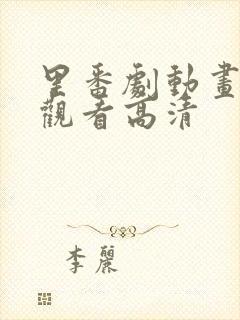 里番劇動畫
觀看高清
李麗